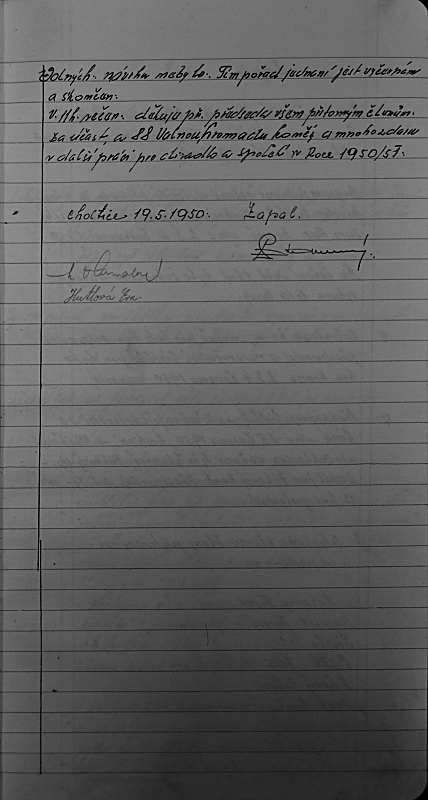 volných návrhu neby lo. Tim pořad jednaní jest vyčerpán
a skončen.
V. 11h. večer. děkuju př. předseda všem přitomným členům.
za učast, a 88 Valnou hromadu končí a mnoho zdaru
v další práci pro divadlo a spolek v Roce 1950/51.
Choltice 19.5.1950. Zapal.
Hutlová Eva.